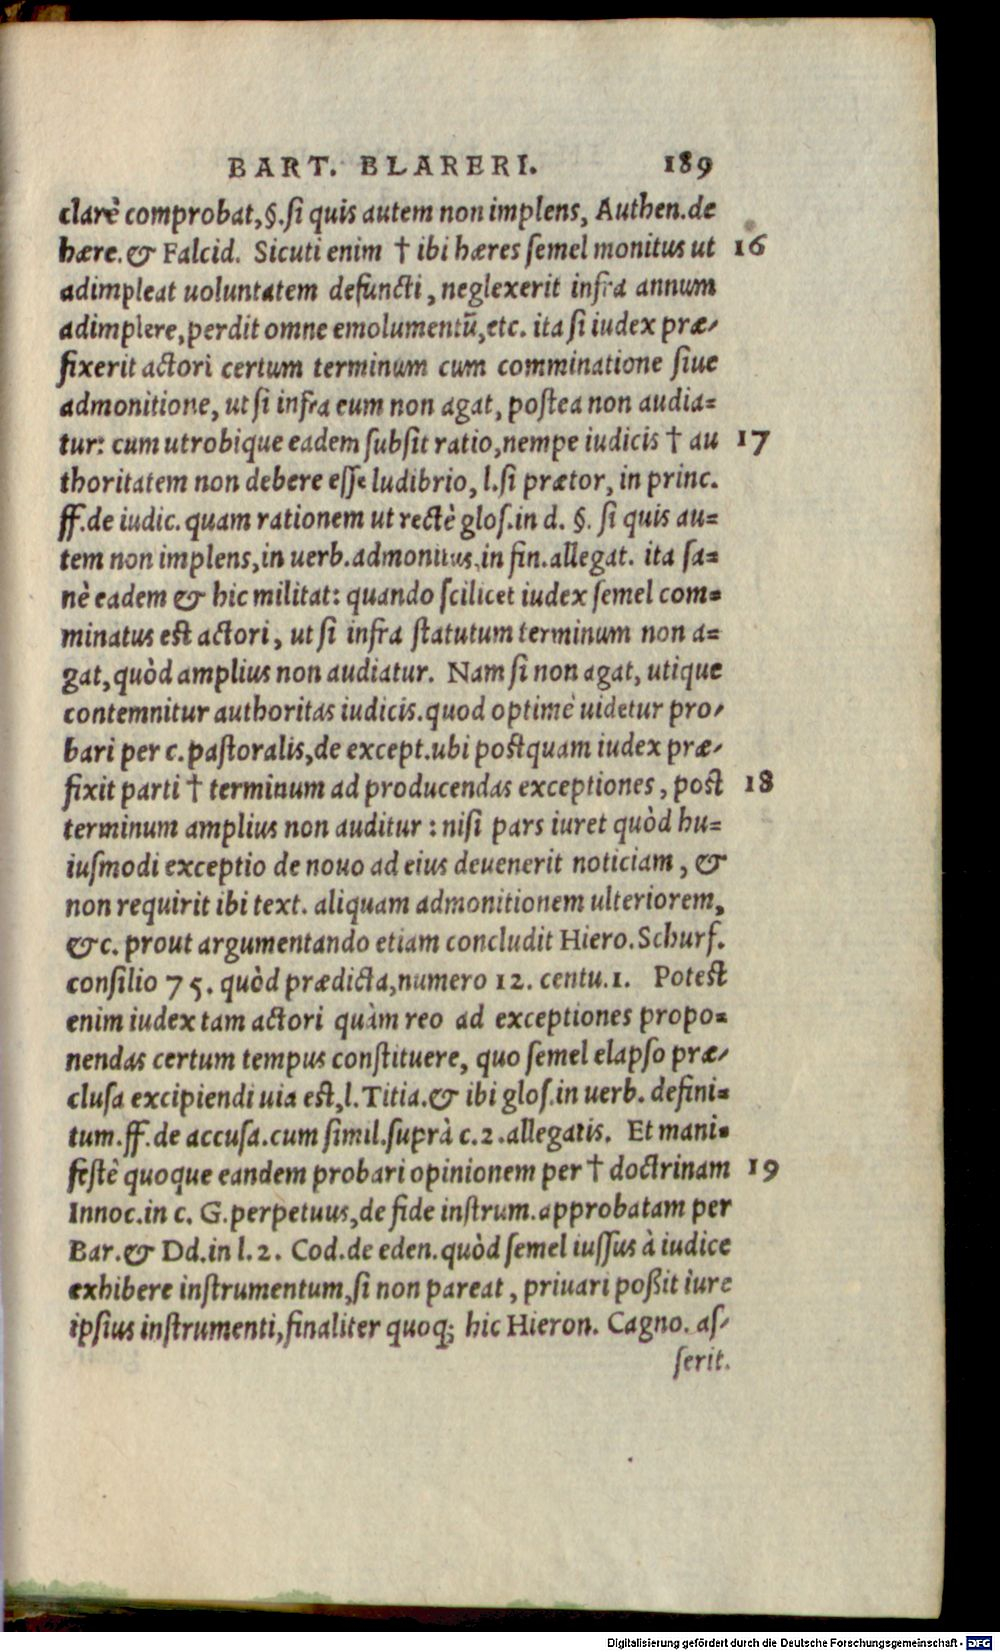 BART. BLARERI. 189
clarè comprobat, §. ſi quis autem non implens, Authen. de
hære. & Falcid. Sicuti enim † ibi hæres ſemel monitus ut 16
adimpleat uoluntatem defuncti, neglexerit infra annum
adimplere, perdit omne emolumentũ, etc. ita ſi iudex præ-
fixerit actori certum terminum cum comminatione ſiue
admonitione, ut ſi infra eum non agat, poſtea non audia=
tur: cum utrobique eadem ſubſit ratio, nempe iudicis † au 17
thoritatem non debere eſſe ludibrio, l. ſi prætor, in princ.
ff. de iudic. quam rationem ut rectè gloſ. in d. §. ſi quis au=
tem non implens, in uerb. admonitus, in fin. allegat. ita ſa=
nè eadem & hic militat: quando ſcilicet iudex ſemel com=
minatus est actori, ut ſi infra ſtatutum terminum non a=
gat, quòd amplius non audiatur. Nam ſi non agat, utique
contemnitur authoritas iudicis. quod optimè uidetur pro-
bari per c. paſtoralis, de except. ubi postquam iudex præ-
fixit parti † terminum ad producendas exceptiones, post 18
terminum amplius non auditur: niſi pars iuret quòd hu=
iuſmodi exceptio de nouo ad eius deuenerit noticiam, &
non requirit ibi text. aliquam admonitionem ulteriorem,
&c. prout argumentando etiam concludit Hiero. Schurf.
conſilio 75. quòd prædicta, numero 12. centu. 1. Potest
enim iudex tam actori quàm reo ad exceptiones propo=
nendas certum tempus conſtituere, quo ſemel elapſo præ-
cluſa excipiendi uia est, l. Titia. & ibi gloſ. in uerb. defini=
tum. ff. de accuſa. cum ſimil. ſuprà c. 2. allegatis. Et mani=
feſtè quoque eandem probari opinionem per † doctrinam 19
Innoc. in c. G. perpetuus, de fide inſtrum. approbatam per
Bar. & Dd. in l. 2. Cod. de eden. quòd ſemel iuſſus à iudice
exhibere inſtrumentum, ſi non pareat, priuari poßit iure
ipſius inſtrumenti, finaliter quoq; hic Hieron. Cagno. aſ-
ſerit.
Digitalisierung gefördert durch die Deutsche Forschungsgemeinschaft - DFG